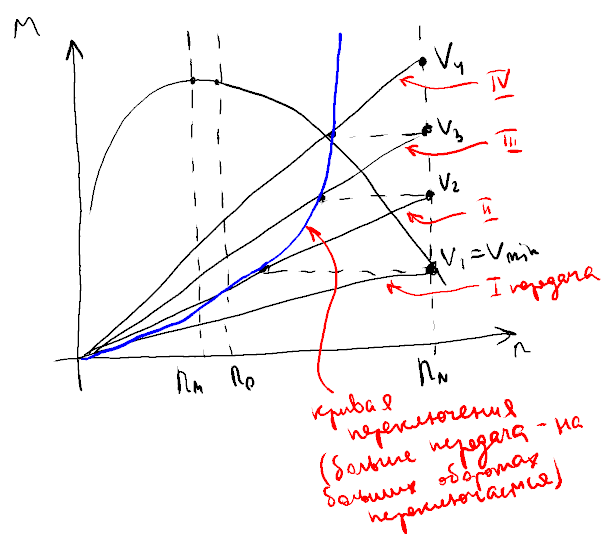 M
V₄
IV
V₃
III
V₂
II
V₁ = Vmin
I передача
n
nм nр nN
кривая
переключения
(больше передача - на
больших оборотах
переключается)